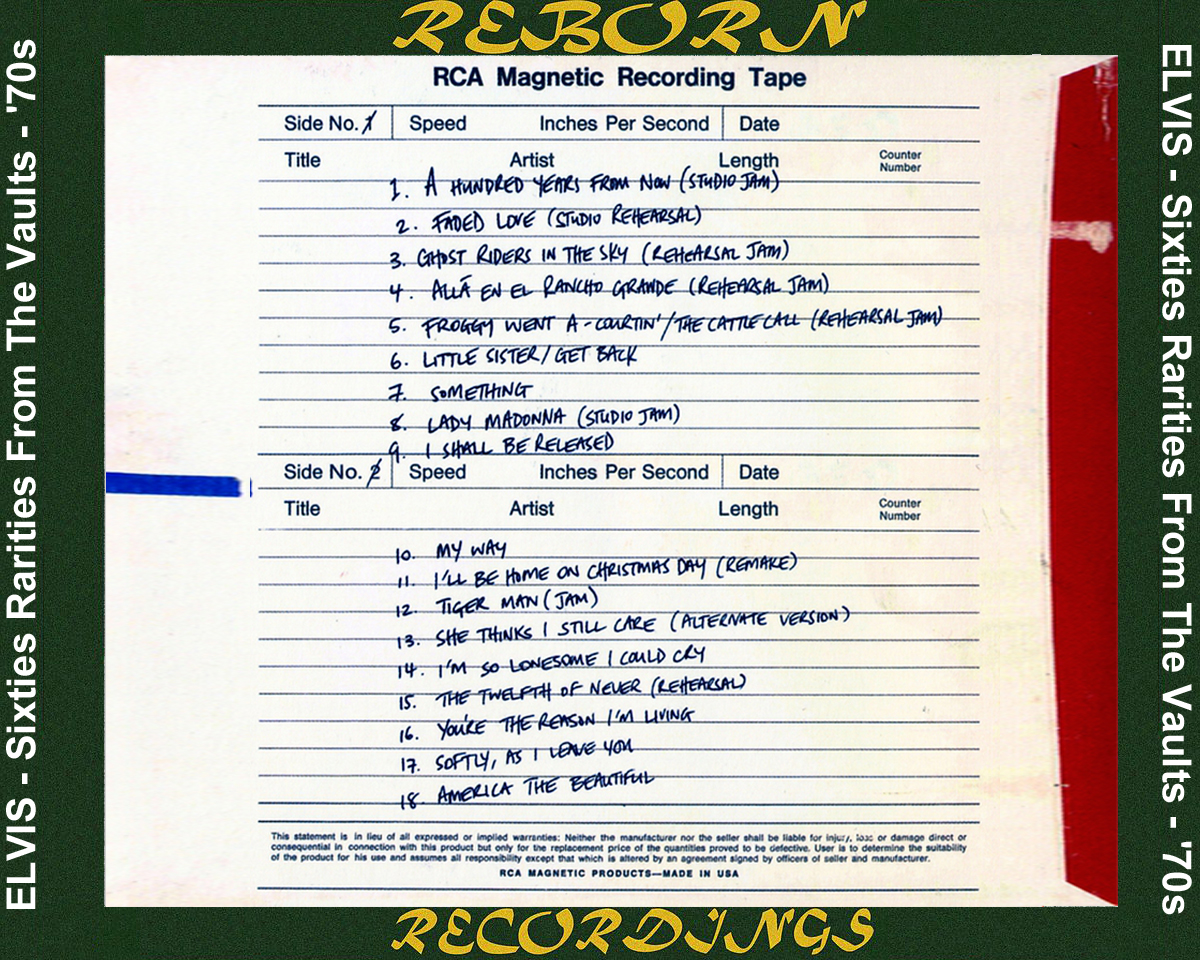 REBORN
ELVIS - Sixties Rarities From The Vaults - '70s
RCA Magnetic Recording Tape
Side No. 1 Speed Inches Per Second Date
Title Artist Length Counter Number
1. A HUNDRED YEARS FROM NOW (STUDIO JAM)
2. FADED LOVE (STUDIO REHEARSAL)
3. GHOST RIDERS IN THE SKY (REHEARSAL JAM)
4. ALLÁ EN EL RANCHO GRANDE (REHEARSAL JAM)
5. FROGGY WENT A-COURTIN'/THE CATTLE CALL (REHEARSAL JAM)
6. LITTLE SISTER/GET BACK
7. SOMETHING
8. LADY MADONNA (STUDIO JAM)
9. I SHALL BE RELEASED
Side No. 2 Speed Inches Per Second Date
Title Artist Length Counter Number
10. MY WAY
11. I'LL BE HOME ON CHRISTMAS DAY (REMAKE)
12. TIGER MAN (JAM)
13. SHE THINKS I STILL CARE (ALTERNATE VERSION)
14. I'M SO LONESOME I COULD CRY
15. THE TWELFTH OF NEVER (REHEARSAL)
16. YOU'RE THE REASON I'M LIVING
17. SOFTLY, AS I LEAVE YOU
18. AMERICA THE BEAUTIFUL
This statement is in lieu of all expressed or implied warranties: Neither the manufacturer nor the seller shall be liable for injury, loss or damage direct or
consequential in connection with this product but only for the replacement price of the quantities proved to be defective. User is to determine the suitability
of the product for his use and assumes all responsibility except that which is altered by an agreement signed by officers of seller and manufacturer.
RCA MAGNETIC PRODUCTS—MADE IN USA
ELVIS - Sixties Rarities From The Vaults - '70s
RECORDINGS